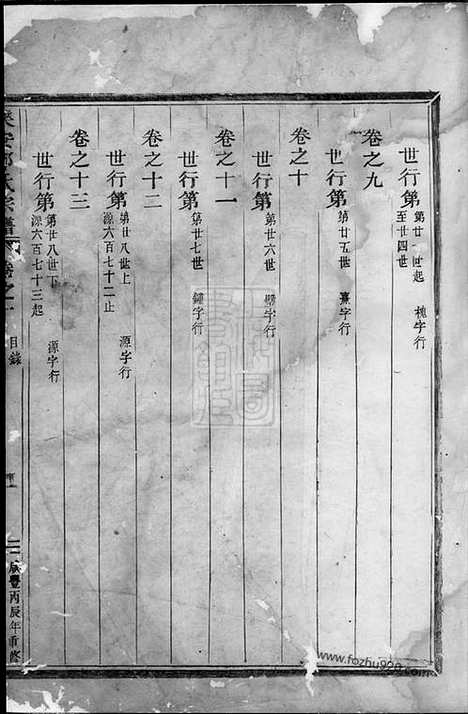 世行第 第廿一世起 至廿四世 槐字行
卷之九
世行第 第廿五世 熹字行
卷之十
世行第 第廿六世 字行
卷之十一
世行第 第廿七世 鍾字行
卷之十二
世行第 第廿八世上 源六百七十二止 源字行
卷之十三
世行第 第廿八世下 源六百七十三起 源字行
氏宗譜 卷之一 目錄 咸豐丙辰年重修
www.fozhu920.com